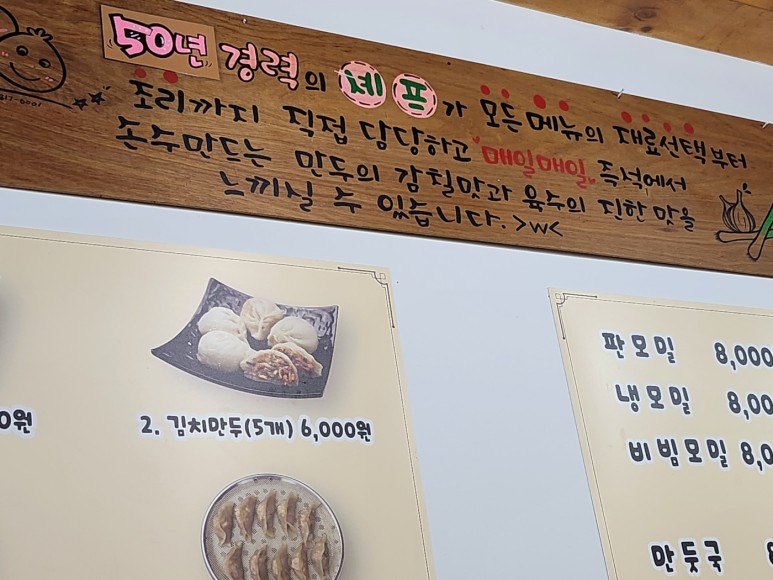 50년 경력의 셰프가 모든 메뉴의 재료선택부터
조리까지 직접 담당하고 "매일매일" 즉석에서
손수만드는 만두의 감칠맛과 육수의 진한 맛을
느끼실 수 있습니다. >w<
0원
2. 김치만두(5개) 6,000원
판모밀 8,000
냉모밀 8,00
비빔모밀 8,0
만둣국